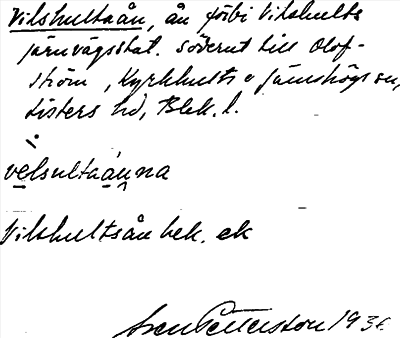 Vilshultaån, ån förbi Vilshults
järnvägsstat. söderut till Olof-
ström, Kyrkhults o Jämshögs sn,
Listers hd, Blek. l.
velsultaánna
Vilshultsån bek. ek
Sven Pettersson 1936